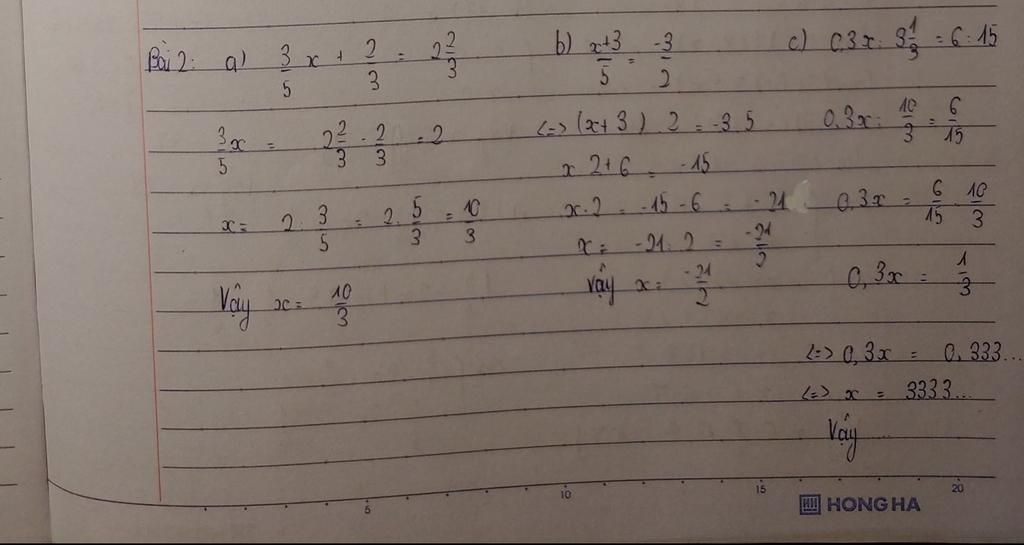 Bài 2: a) 3/5 x + 2/3 = 2 2/3
3/5 x = 2 2/3 - 2/3 = 2
x = 2 : 3/5 = 2 . 5/3 = 10/3
Vậy x = 10/3
b) x+3/5 = -3/2
<=> (x+3) . 2 = -3.5
x . 2 + 6 = -15
x . 2 = -15 - 6 = -21
x = -21 : 2 = -21/2
Vậy x = -21/2
c) 0,3x : 3 1/3 = 6 : 15
0,3x : 10/3 = 6/15
0,3x = 6/15 . 10/3
0,3x = 1/3
<=> 0,3x = 0,333...
<=> x = 3333...
Vậy ...
5 10 15 20
HH HONG HA